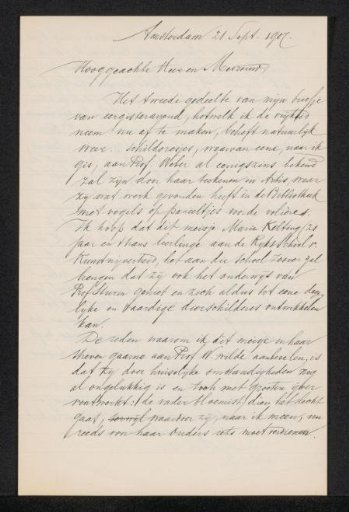 Amsterdam 21 Sept. 1907.
Hooggeachte Heer en Mevrouw,
Het tweede gedeelte van mijn briefje
van eergisteravond, hetwelk ik de vrijheid
neem nu af te maken, betreft natuurlijk
weer schilderesjes, waarvan eene, naar ik
gis, aan Prof. Weber al eenigszins bekend
zal zijn door haar teekenen in Artis, waar
zij wat werk gevonden heeft in de Bibliotheek
met vogels op paneeltjes voor de volières.
Ik hoop dat dit meisje Maria Kelting, 21
jaar en thans leerlinge aan de Rijks School v.
Kunstnijverheid, het aan die School zoover zal
brengen dat zij ook het onderwijs van
Prof. geniet en zich aldus tot eene
lijke en vaardige dierschilderes ontwikkelen
kan.
De reden waarom ik dit meisje en haar
streven gaarne aan Prof. W. wilde aanbevelen, is
dat zij door huiselijke omstandigheden erg
ongelukkig is en toch met grooten ijver
voortwerkt: de vader bloemist, dien het slecht
gaat, waardoor zij, naar ik meen, nu
reeds voor haar Ouders iets moet verdienen.